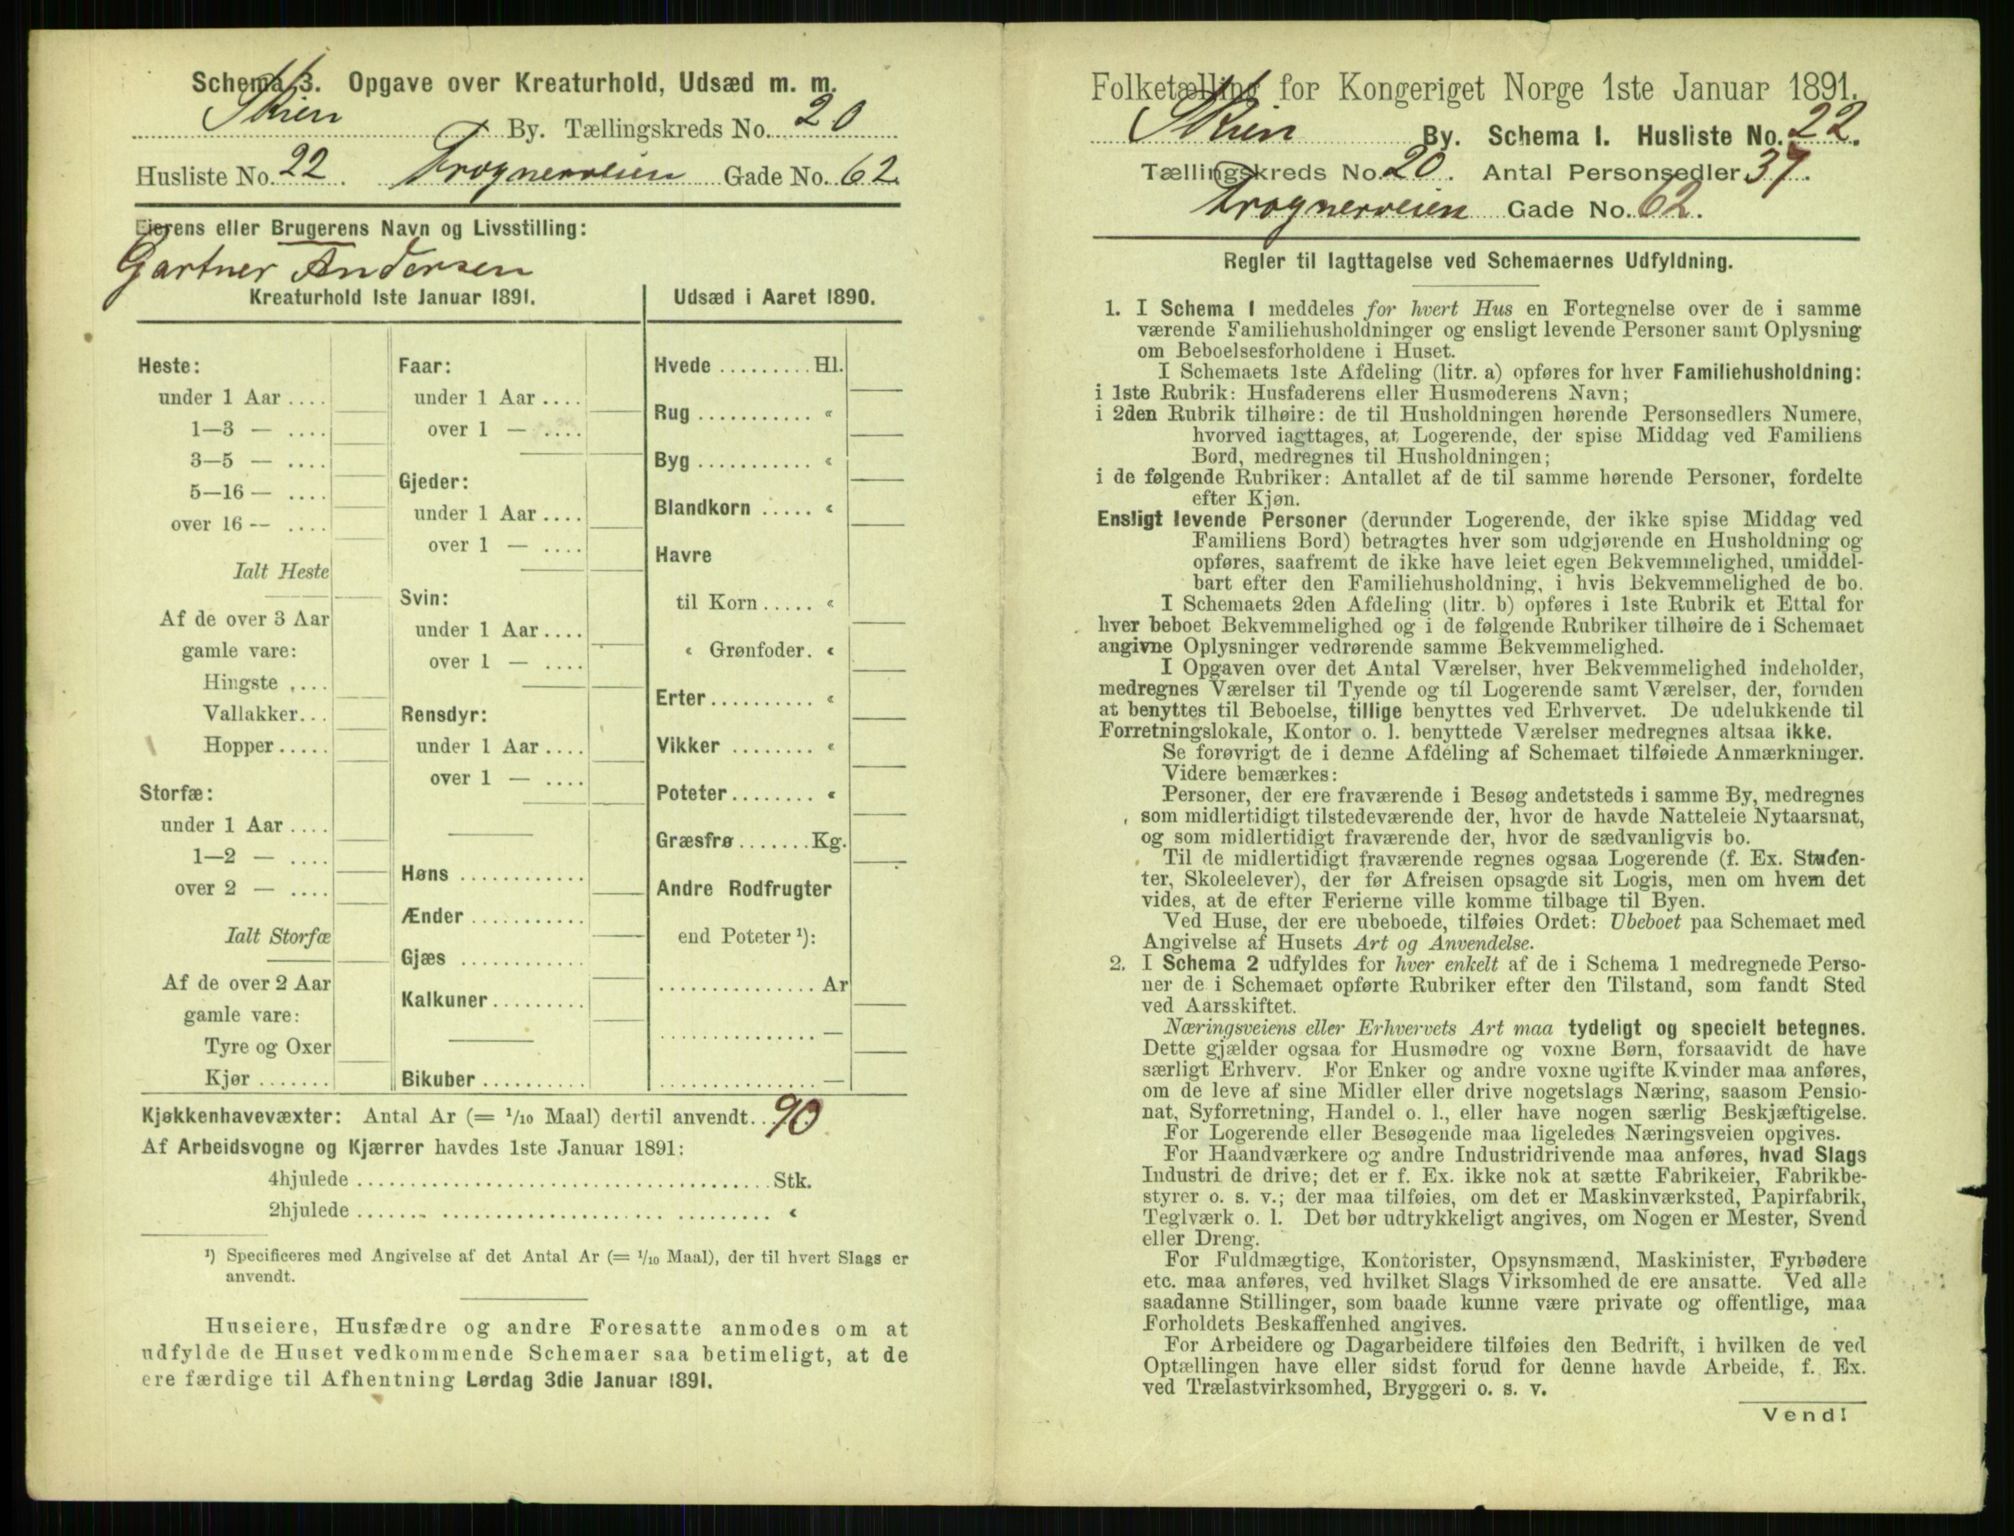 Schema 3. Opgave over Kreaturhold, Udsæd m. m.
Skien By. Tællingskreds No. 20
Husliste No. 22. Frognerveien Gade No. 62.
Eierens eller Brugerens Navn og Livsstilling:
Gartner Andersen
Kreaturhold 1ste Januar 1891.
Heste:
under 1 Aar ....
1—3 — ....
3—5 — ....
5—16 — ....
over 16 -- ....
Ialt Heste
Af de over 3 Aar
gamle vare:
Hingste ....
Vallakker...
Hopper.....
Storfæ:
under 1 Aar ....
1—2 — ....
over 2 — ....
Ialt Storfæ
Af de over 2 Aar
gamle vare:
Tyre og Oxer
Kjør .......
Faar:
under 1 Aar ....
over 1 — ....
Gjeder:
under 1 Aar ....
over 1 — ....
Svin:
under 1 Aar ....
over 1 — ....
Rensdyr:
under 1 Aar ....
over 1 — ....
Høns ............
Ænder ...........
Gjæs ............
Kalkuner.........
Bikuber ..........
Udsæd i Aaret 1890.
Hvede ......... Hl.
Rug ........... «
Byg ........... «
Blandkorn ..... «
Havre
til Korn ..... «
« Grønfoder. «
Erter.......... «
Vikker ........ «
Poteter........ «
Græsfrø ....... Kg.
Andre Rodfrugter
end Poteter ¹):
............... Ar
............... —
............... —
Kjøkkenhavevæxter: Antal Ar (= 1/10 Maal) dertil anvendt.. 90
Af Arbeidsvogne og Kjærrer havdes 1ste Januar 1891:
4hjulede ...................................... Stk.
2hjulede ...................................... «
¹) Specificeres med Angivelse af det Antal Ar (= 1/10 Maal), der til hvert Slags er
anvendt.
Huseiere, Husfædre og andre Foresatte anmodes om at
udfylde de Huset vedkommende Schemaer saa betimeligt, at de
ere færdige til Afhentning Lørdag 3die Januar 1891.
Folketælling for Kongeriget Norge 1ste Januar 1891.
Skien By. Schema I. Husliste No. 22.
Tællingskreds No. 20. Antal Personsedler 37.
Frognerveien Gade No. 62.
Regler til Iagttagelse ved Schemaernes Udfyldning.
1. I Schema 1 meddeles for hvert Hus en Fortegnelse over de i samme
værende Familiehusholdninger og ensligt levende Personer samt Oplysning
om Beboelsesforholdene i Huset.
I Schemaets 1ste Afdeling (litr. a) opføres for hver Familiehusholdning:
i 1ste Rubrik: Husfaderens eller Husmoderens Navn;
i 2den Rubrik tilhøire: de til Husholdningen hørende Personsedlers Numere,
hvorved iagttages, at Logerende, der spise Middag ved Familiens
Bord, medregnes til Husholdningen;
i de følgende Rubriker: Antallet af de til samme hørende Personer, fordelte
efter Kjøn.
Ensligt levende Personer (derunder Logerende, der ikke spise Middag ved
Familiens Bord) betragtes hver som udgjørende en Husholdning og
opføres, saafremt de ikke have leiet egen Bekvemmelighed, umiddel-
bart efter den Familiehusholdning, i hvis Bekvemmelighed de bo.
I Schemaets 2den Afdeling (litr. b) opføres i 1ste Rubrik et Ettal for
hver beboet Bekvemmelighed og i de følgende Rubriker tilhøire de i Schemaet
angivne Oplysninger vedrørende samme Bekvemmelighed.
I Opgaven over det Antal Værelser, hver Bekvemmelighed indeholder,
medregnes Værelser til Tyende og til Logerende samt Værelser, der, foruden
at benyttes til Beboelse, tillige benyttes ved Erhvervet. De udelukkende til
Forretningslokale, Kontor o. l. benyttede Værelser medregnes altsaa ikke.
Se forøvrigt de i denne Afdeling af Schemaet tilføiede Anmærkninger.
Videre bemærkes:
Personer, der ere fraværende i Besøg andetsteds i samme By, medregnes
som midlertidigt tilstedeværende der, hvor de havde Natteleie Nytaarsnat,
og som midlertidigt fraværende der, hvor de sædvanligvis bo.
Til de midlertidigt fraværende regnes ogsaa Logerende (f. Ex. Studen-
ter, Skoleelever), der før Afreisen opsagde sit Logis, men om hvem det
vides, at de efter Ferierne ville komme tilbage til Byen.
Ved Huse, der ere ubeboede, tilføies Ordet: Ubeboet paa Schemaet med
Angivelse af Husets Art og Anvendelse.
2. I Schema 2 udfyldes for hver enkelt af de i Schema 1 medregnede Perso-
ner de i Schemaet opførte Rubriker efter den Tilstand, som fandt Sted
ved Aarsskiftet.
Næringsveiens eller Erhvervets Art maa tydeligt og specielt betegnes.
Dette gjælder ogsaa for Husmødre og voxne Børn, forsaavidt de have
særligt Erhverv. For Enker og andre voxne ugifte Kvinder maa anføres,
om de leve af sine Midler eller drive nogetslags Næring, saasom Pensio-
nat, Syforretning, Handel o. l., eller have nogen særlig Beskjæftigelse.
For Logerende eller Besøgende maa ligeledes Næringsveien opgives.
For Haandværkere og andre Industridrivende maa anføres, hvad Slags
Industri de drive; det er f. Ex. ikke nok at sætte Fabrikeier, Fabrikbe-
styrer o. s. v.; der maa tilføies, om det er Maskinværksted, Papirfabrik,
Teglværk o. l. Det bør udtrykkeligt angives, om Nogen er Mester, Svend
eller Dreng.
For Fuldmægtige, Kontorister, Opsynsmænd, Maskinister, Fyrbødere
etc. maa anføres, ved hvilket Slags Virksomhed de ere ansatte. Ved alle
saadanne Stillinger, som baade kunne være private og offentlige, maa
Forholdets Beskaffenhed angives.
For Arbeidere og Dagarbeidere tilføies den Bedrift, i hvilken de ved
Optællingen have eller sidst forud for denne havde Arbeide, f. Ex.
ved Trælastvirksomhed, Bryggeri o. s. v.
Vend!